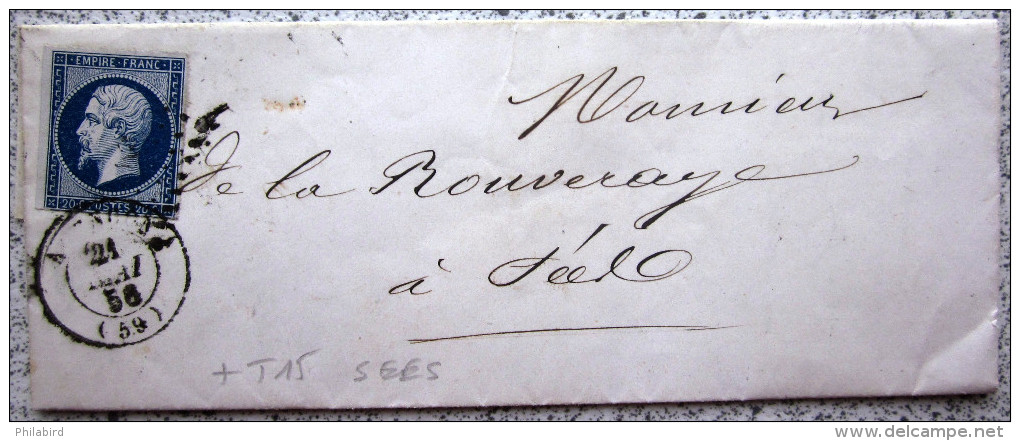 EMPIRE · FRANC
20 C. POSTES 20 C.
Monsieur
de la Rouveraye
à Séez
21
MAI
58
(59)
+ T15 SEES
Philabird
www.delcampe.net